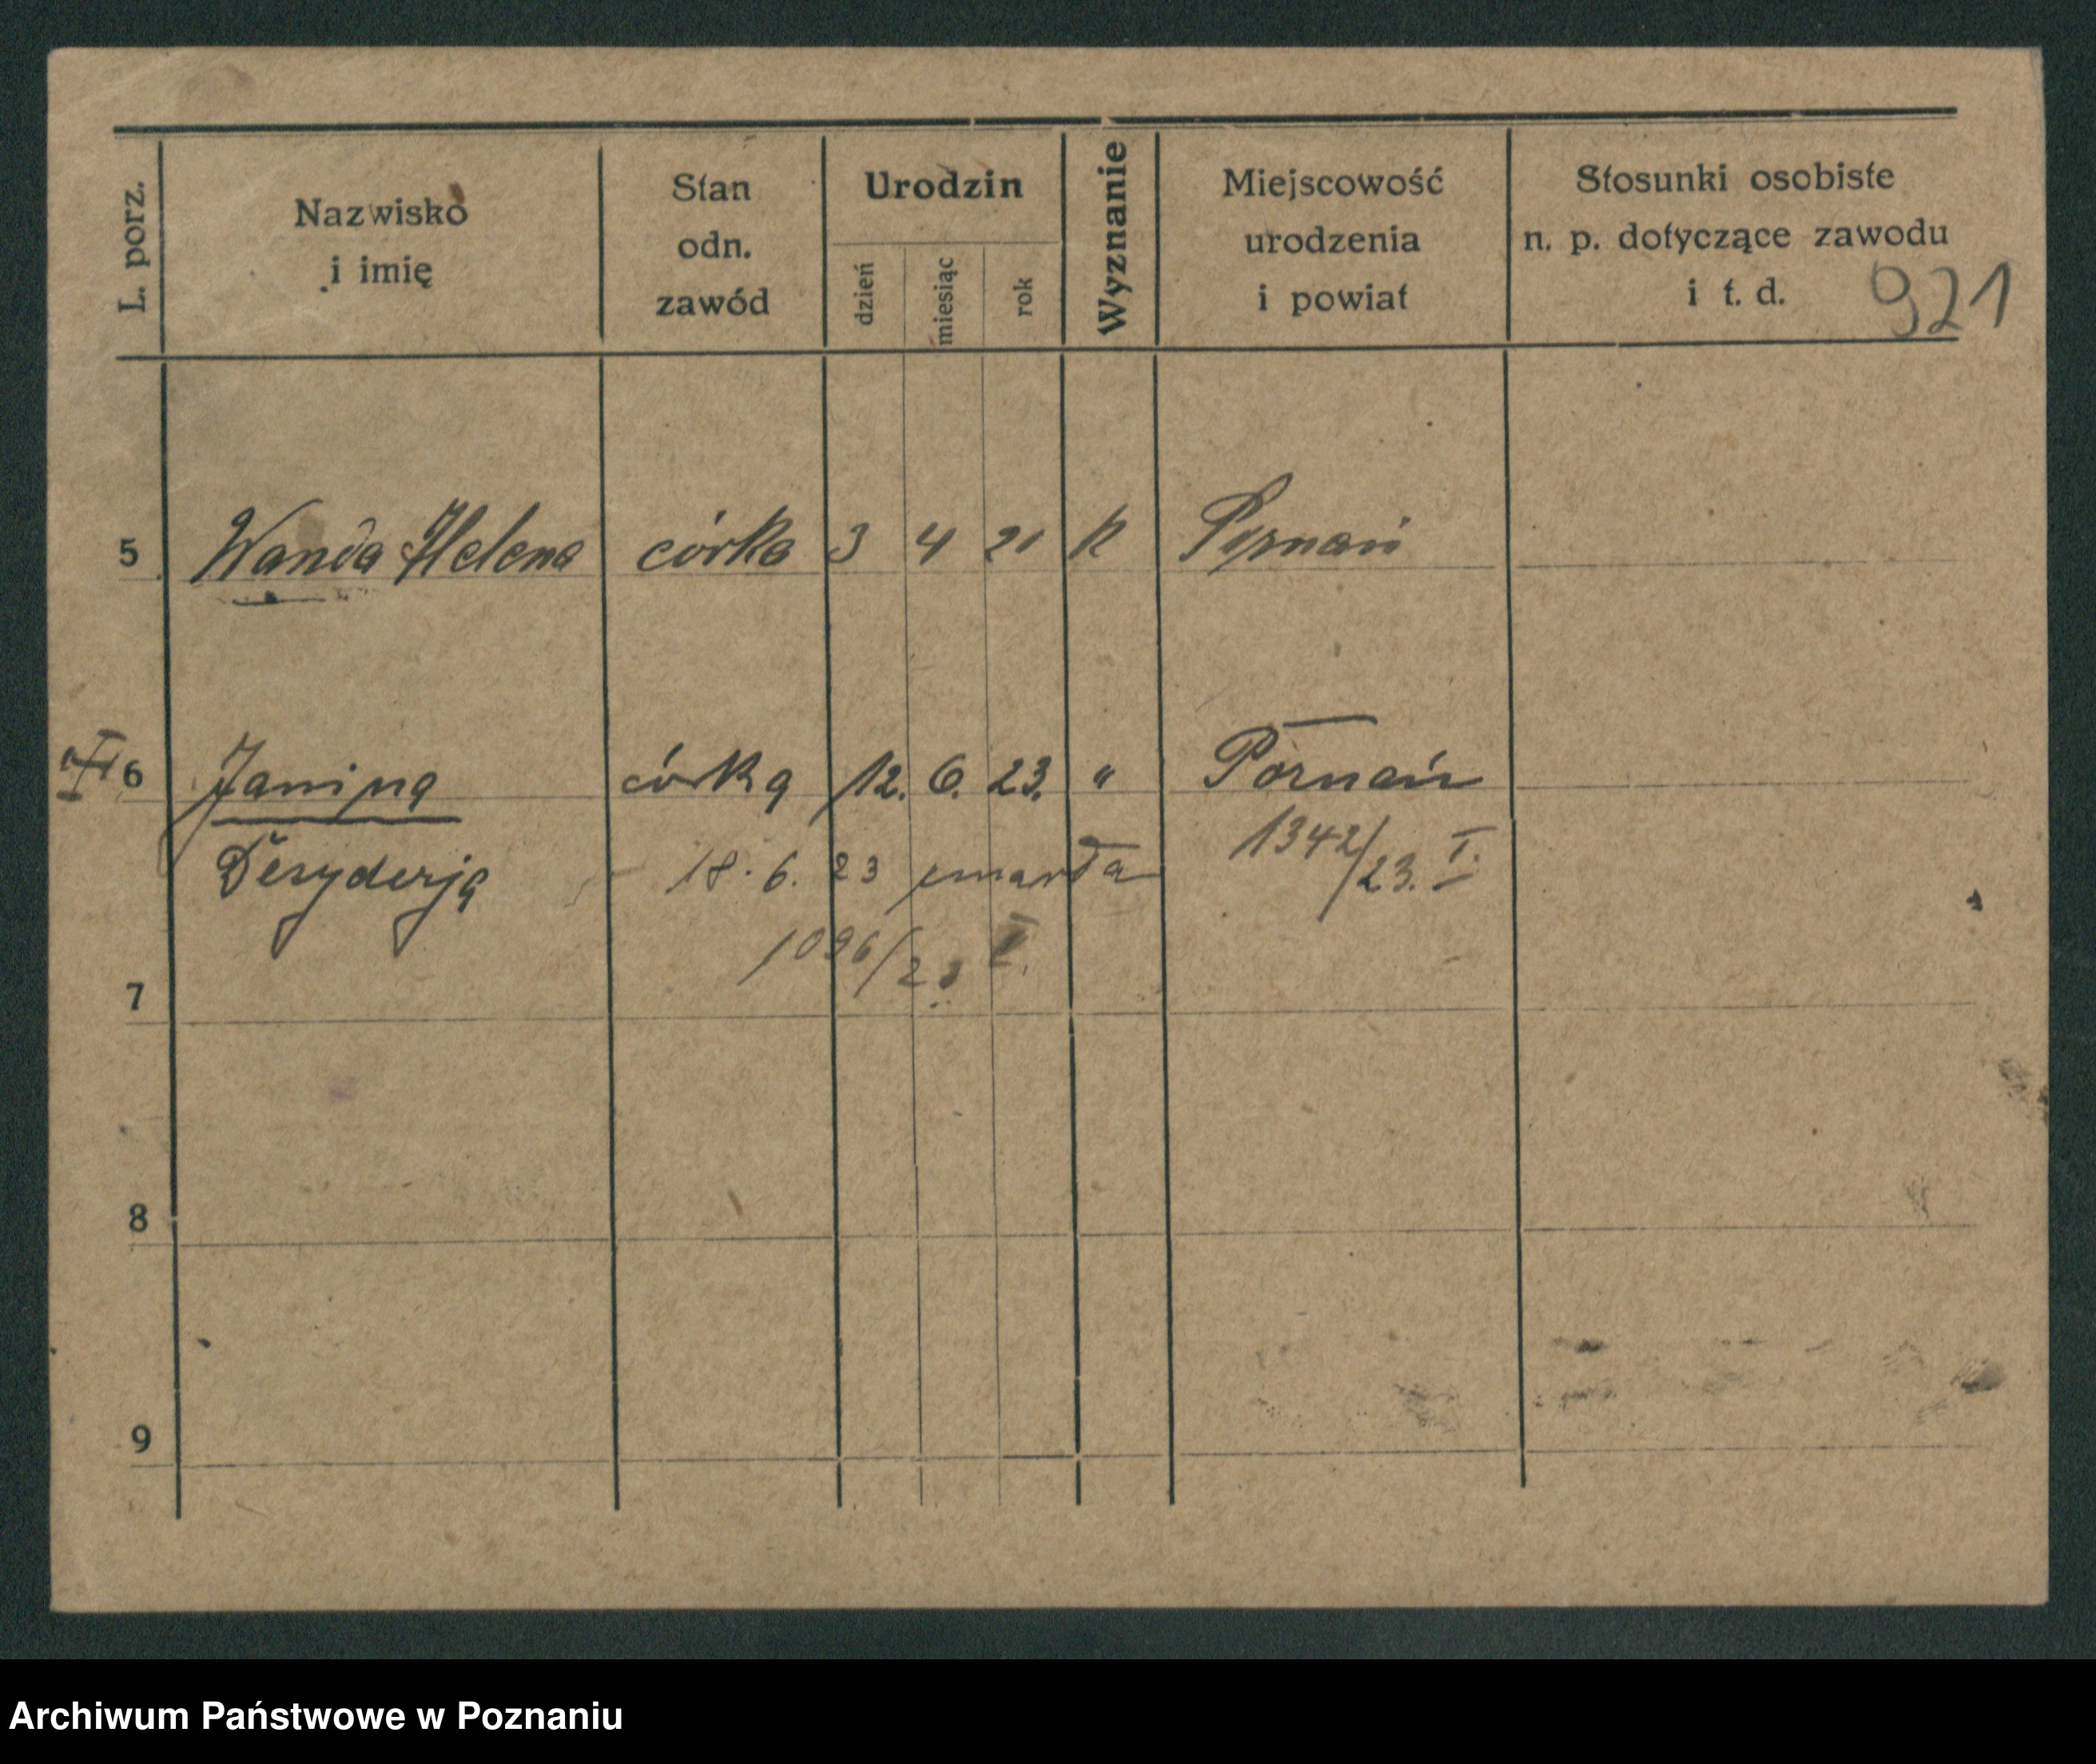 L. porz.
Nazwisko
i imię
Stan
odn.
zawód
Urodzin
dzień
miesiąc
rok
Wyznanie
Miejscowość
urodzenia
i powiat
Stosunki osobiste
n. p. dotyczące zawodu
i t. d.
921
5 Wanda Helena córka 3 4 21 k Poznań
6 Janina córka 12. 6. 23. " Poznań
Desyderja 18. 6. 23 zmarła 1342/23. I.
1096/23
7
8
9
Archiwum Państwowe w Poznaniu